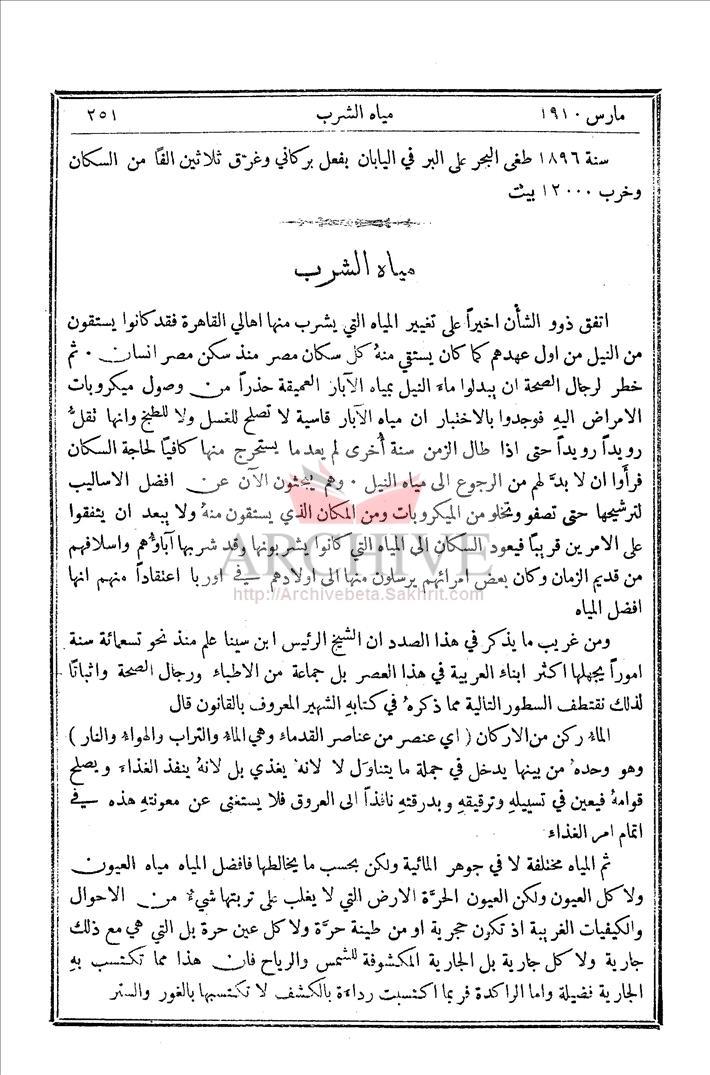 مارس ١٩١٠ مياه الشرب ٢٥١
سنة ١٨٩٦ طغى البحر على البر في اليابان بفعل بركاني وغرّق ثلاثين الفًا من السكان
وخرب ١٢٠٠٠ بيت
مياه الشرب
اتفق ذوو الشأن اخيراً على تغيير المياه التي يشرب منها اهالي القاهرة فقد كانوا يستقون
من النيل من اول عهدهم كما كان يستقي منهُ كل سكان مصر منذ سكن مصر انسان ٠ ثم
خطر لرجال الصحة ان يبدلوا ماء النيل بمياه الآبار العميقة حذراً من وصول ميكروبات
الامراض اليهِ فوجدوا بالاختبار ان مياه الآبار قاسية لا تصلح للغسل ولا للطبخ وانها تقلُّ
رويداً رويداً حتى اذا طال الزمن سنة أُخرى لم يعد ما يستخرج منها كافيًا لحاجة السكان
فرأَوا ان لا بدَّ لهم من الرجوع الى مياه النيل ٠ وهم يبحثون الآن عن افضل الاساليب
لترشيحها حتى تصفو وتخلو من الميكروبات ومن المكان الذي يستقون منهُ ولا يبعد ان يتفقوا
على الامرين قريبًا فيعود السكان الى المياه التي كانوا يشربونها وقد شربها آباؤُهم واسلافهم
من قديم الزمان وكان بعض امرائهم يرسلون منها الى اولادهم في اوربا اعتقاداً منهم انها
افضل المياه
ARCHIVE
http://Archivebeta.Sakhrit.com
ومن غريب ما يذكر في هذا الصدد ان الشيخ الرئيس ابن سينا علم منذ نحو تسعمائة سنة
اموراً يجهلها اكثر ابناء العربية في هذا العصر بل جماعة من الاطباء ورجال الصحة واثباتًا
لذلك نقتطف السطور التالية مما ذكرهُ في كتابهِ الشهير المعروف بالقانون قال
الماءُ ركن من الاركان ( اي عنصر من عناصر القدماء وهي الماءُ والتراب والهواءُ والنار )
وهو وحدهُ من بينها يدخل في جملة ما يتناول لا لانهُ يغذي بل لانهُ ينفذ الغذاءَ ويصلح
قوامهُ فيعين في تسييلهِ وترقيقهِ وبدرقتهِ نافذاً الى العروق فلا يستغنى عن معونتهِ هذه في
اتمام امر الغذاء
ثم المياه مختلفة لا في جوهر المائية ولكن بحسب ما يخالطها فافضل المياه مياه العيون
ولا كل العيون ولكن العيون الحرَّة الارض التي لا يغلب على تربتها شيءٌ من الاحوال
والكيفيات الغريبة اذ تكون حجرية او من طينة حرَّة ولا كل عين حرة بل التي هي مع ذلك
جارية ولا كل جارية بل الجارية المكشوفة للشمس والرياح فان هذا مما تكتسب بهِ
الجارية فضيلة واما الراكدة فربما اكتسبت رداءَة بالكشف لا تكتسبها بالغور والستر